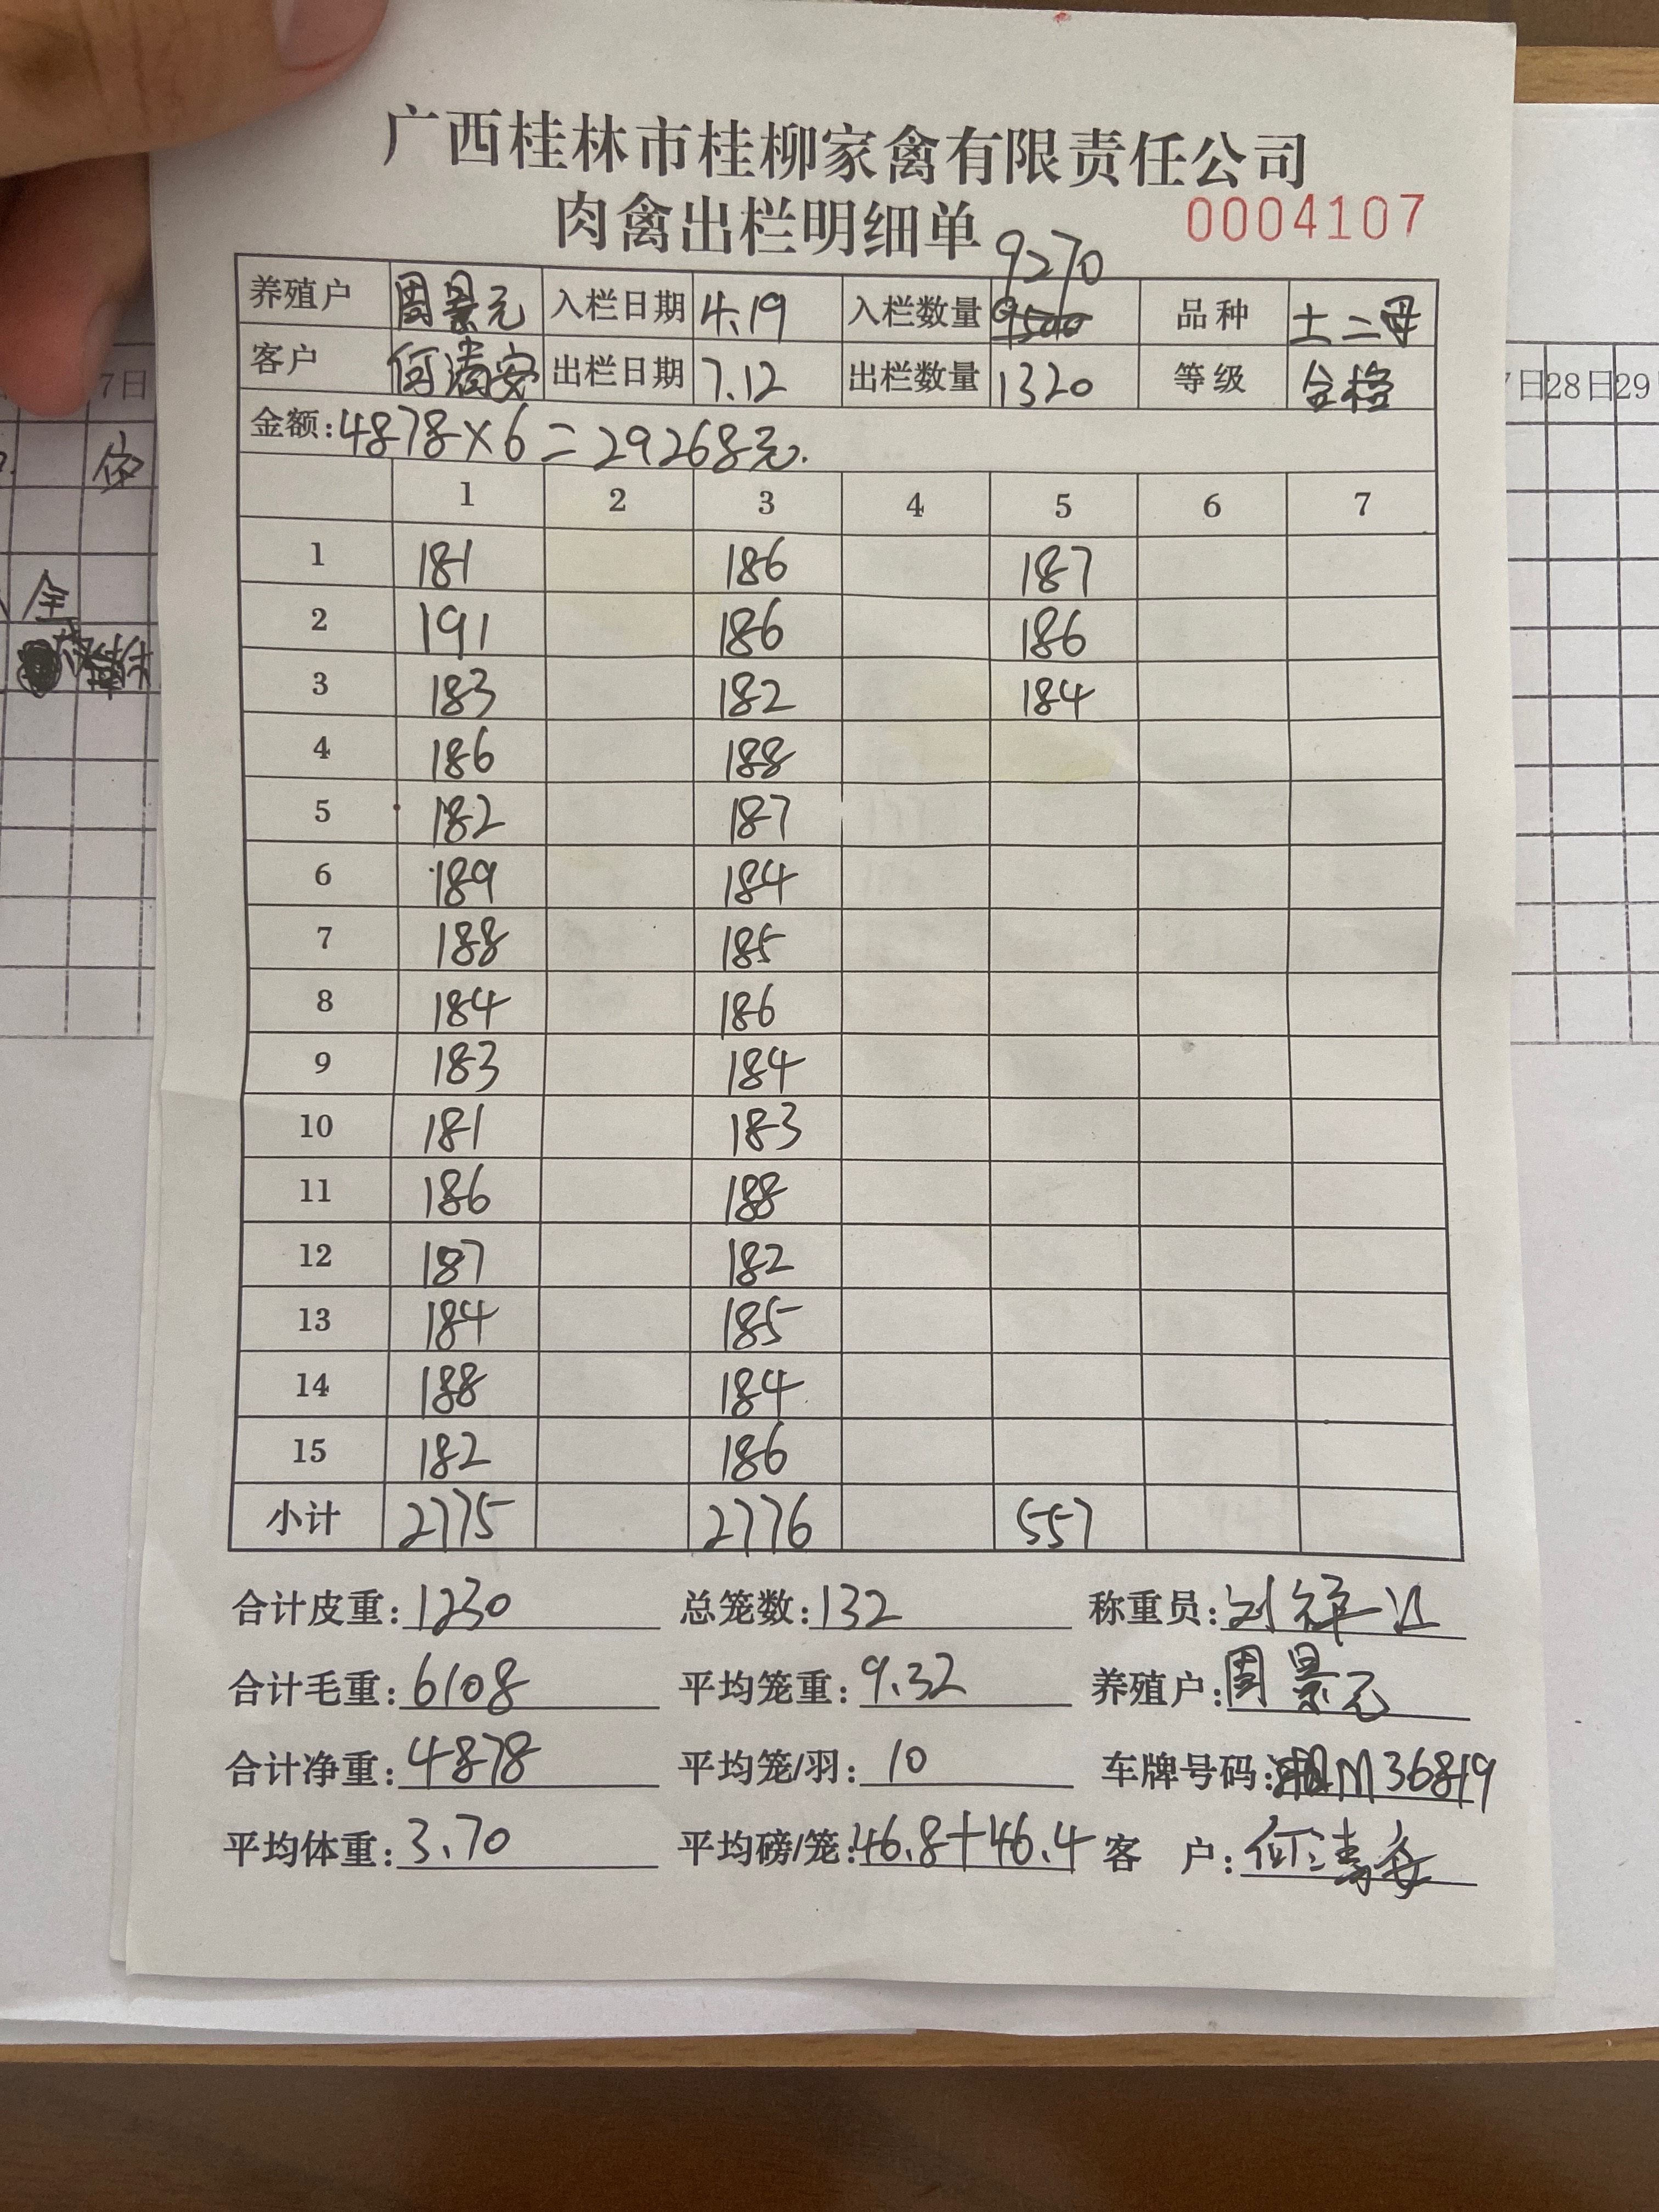 广西桂林市桂柳家禽有限责任公司
肉禽出栏明细单 0004107
9270
养殖户 周景元 入栏日期 4.19 入栏数量 9500 品种 土二母
客户 何清安 出栏日期 7.12 出栏数量 1320 等级 合格
金额:4878×6=29268元.
1 2 3 4 5 6 7
1 181 186 187
2 191 186 186
3 183 182 184
4 186 188
5 182 187
6 189 184
7 188 185
8 184 186
9 183 184
10 181 183
11 186 188
12 187 182
13 184 185
14 188 184
15 182 186
小计 2775 2776 557
合计皮重:1230 总笼数:132 称重员:刘祥
合计毛重:6108 平均笼重:9.32 养殖户:周景元
合计净重:4878 平均笼/羽:10 车牌号码:湘M36819
平均体重:3.70 平均磅/笼:46.8+46.4 客 户:何清安
7日
7日 28日 29